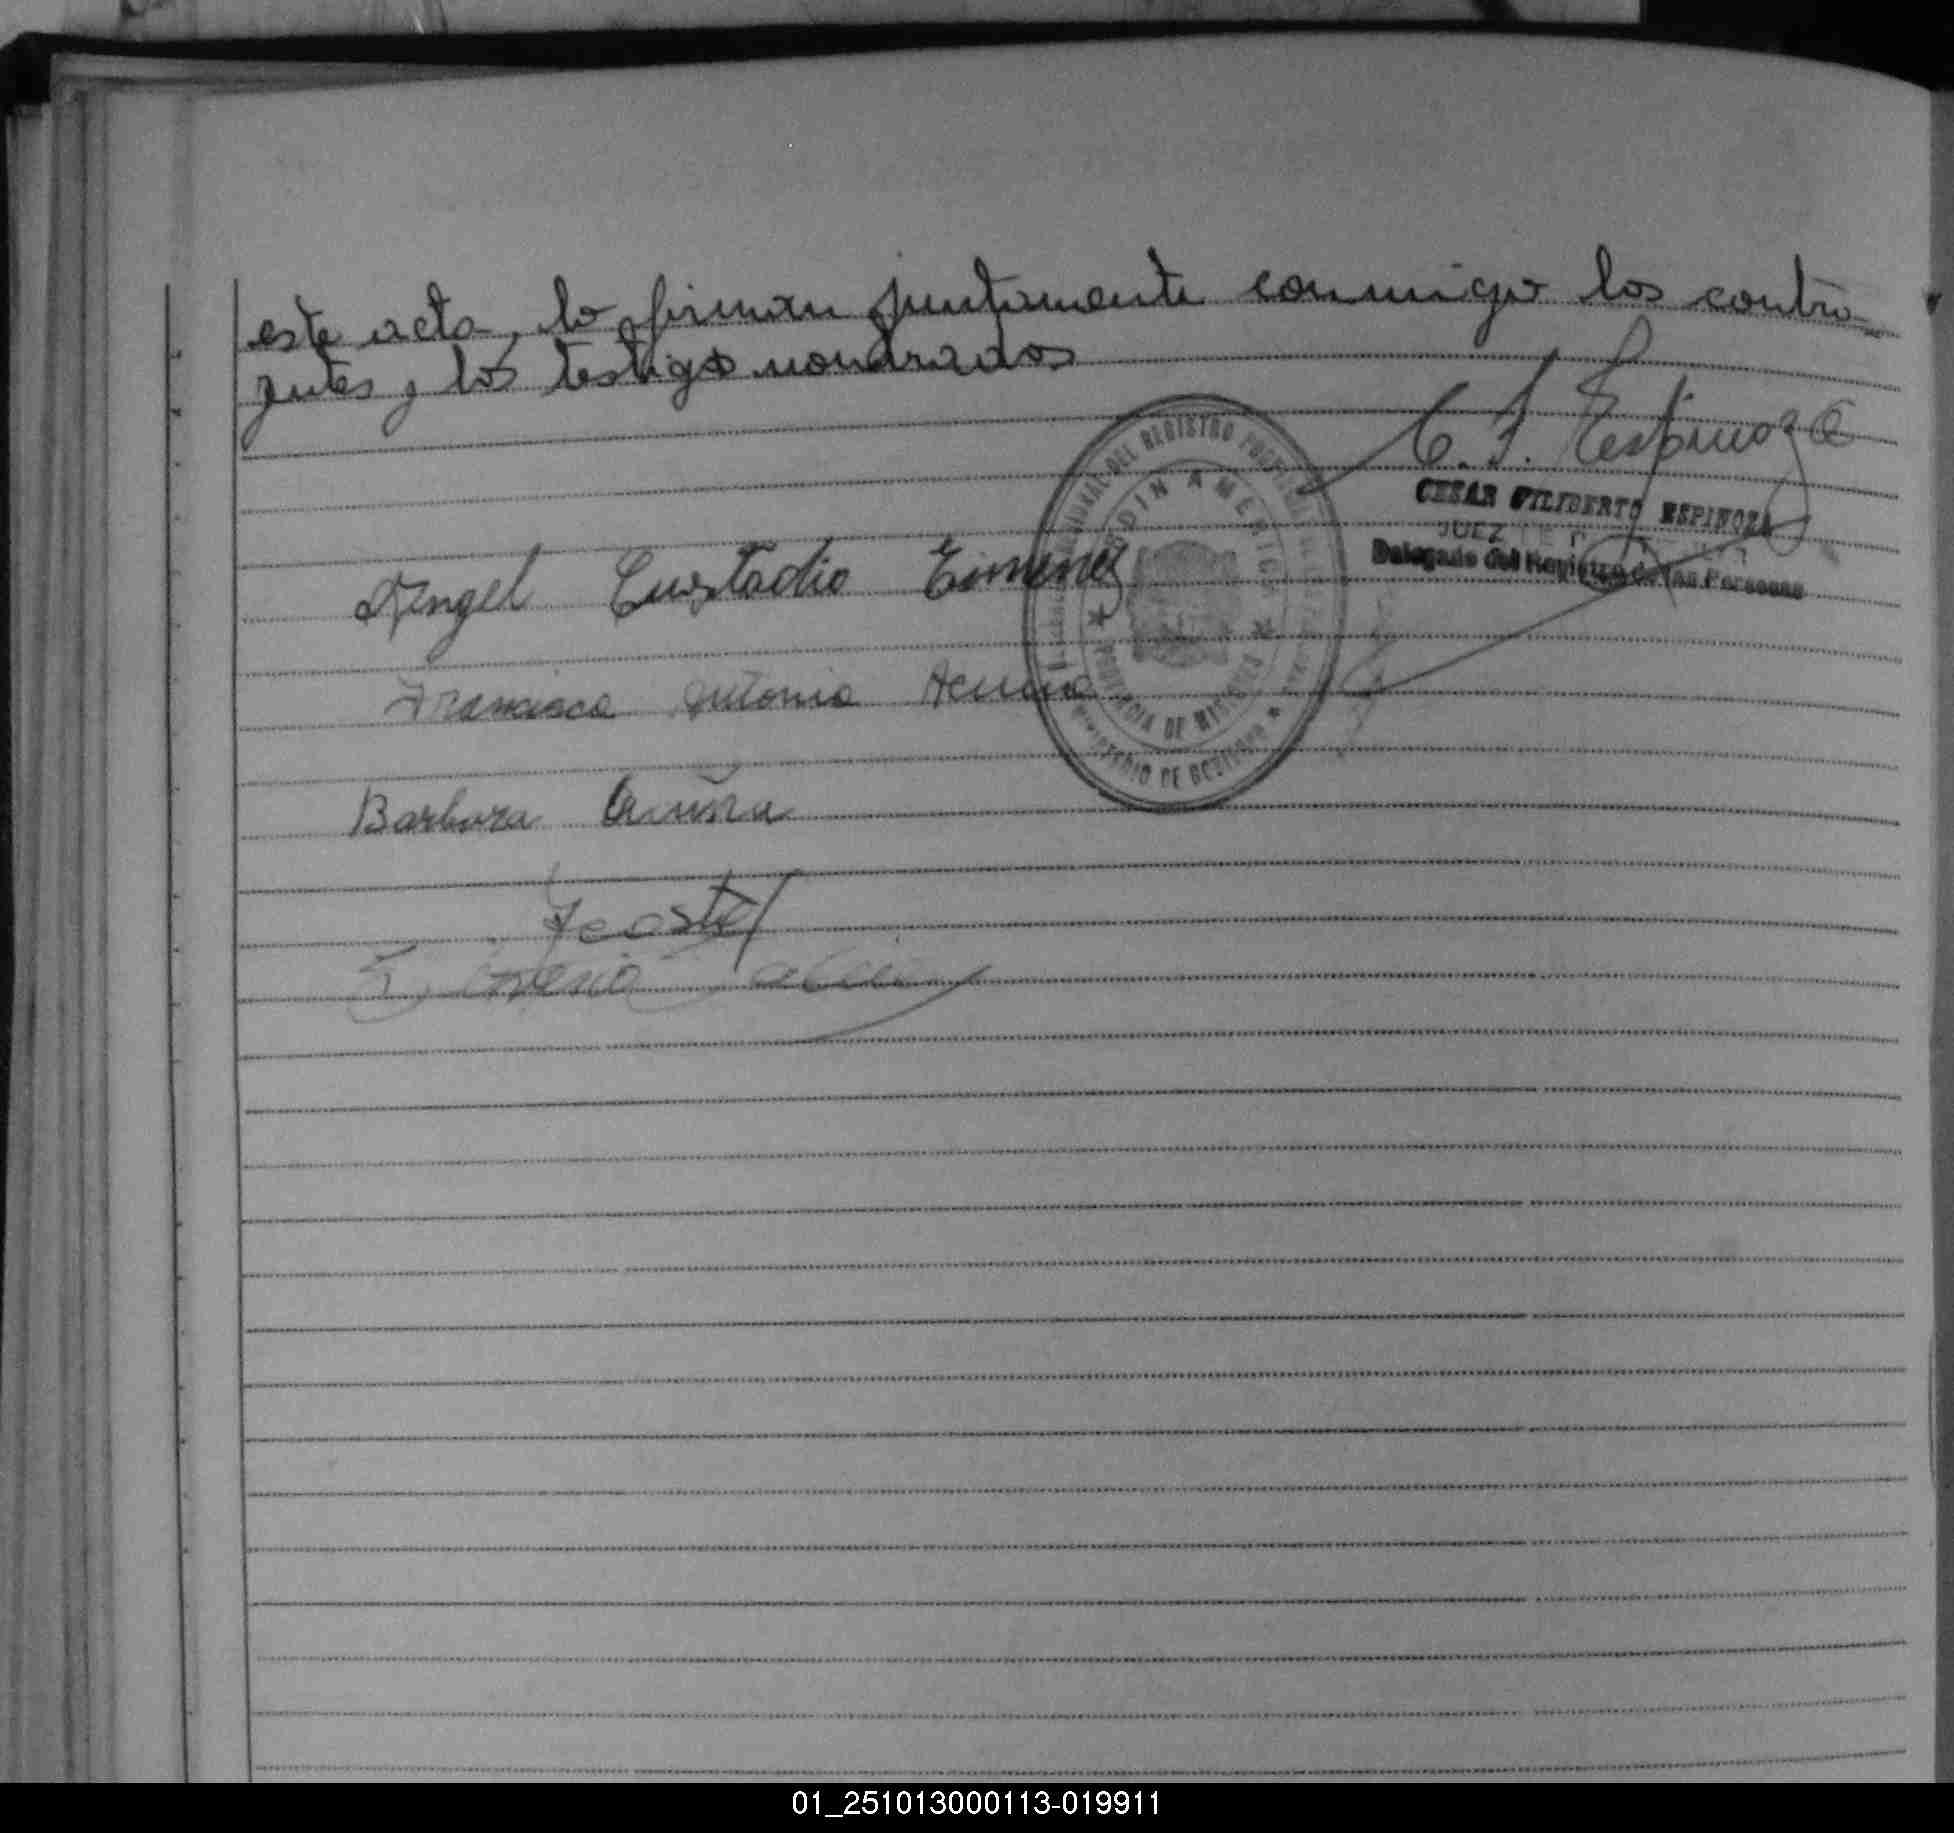 este acta, lo firman juntamente conmigo los contra-
yentes y los testigos nombrados
C. F. Espinoza
CESAR FILIBERTO ESPINOZA
JUEZ DE
Delegado del Registro de las Personas
DEL REGISTRO
JARDIN AMERICA
PROVINCIA DE MISIONES
MINISTERIO DE GOBIERNO
Angel Eustadio Eimenez
Francisca Antonia Acuña
Barbara Acuña
01_251013000113-019911